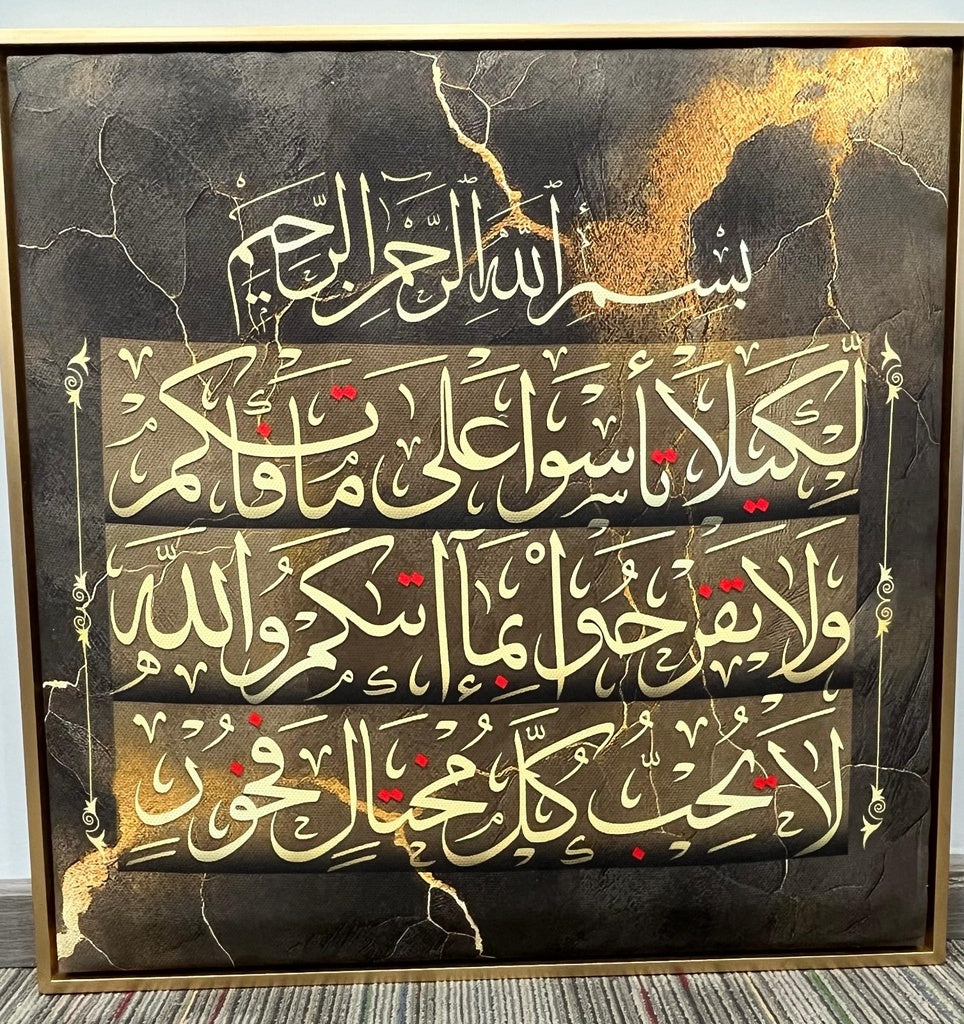 بِسْمِ ٱللَّهِ ٱلرَّحْمَٰنِ ٱلرَّحِيمِ
لِّكَيْلَا تَأْسَوْا عَلَىٰ مَا فَاتَكُمْ
وَلَا تَفْرَحُوا بِمَآ آتَىٰكُمْ وَاللَّهُ
لَا يُحِبُّ كُلَّ مُخْتَالٍ فَخُورٍ